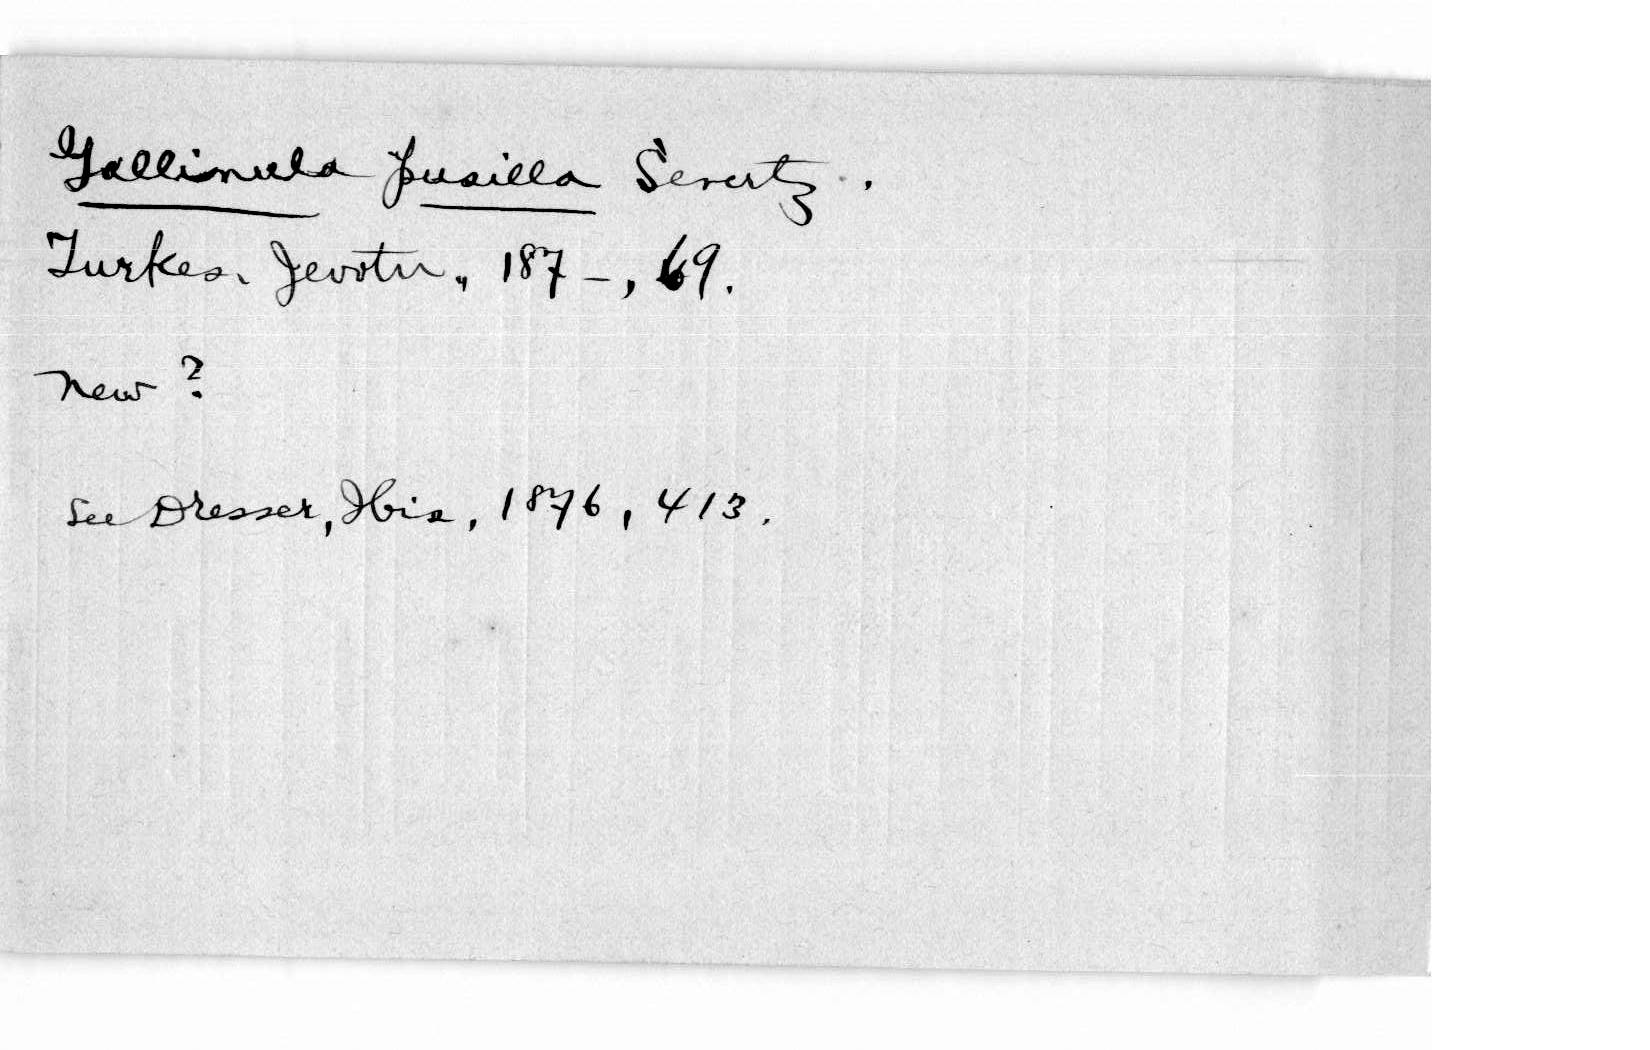 Gallinula pusilla Severtz.
Turkes. Jevotn., 187-, 69.
New?
See Dresser, Ibis, 1876, 413.